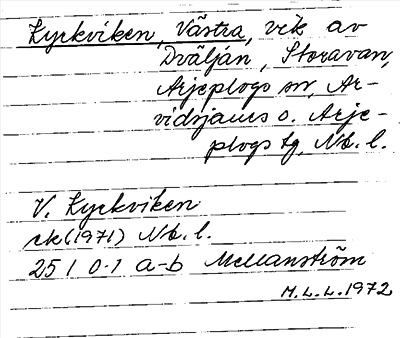 Kyrkviken, Västra, vik av
Dvälján, Storavan,
Arjeplogs sn, Ar-
vidsjaurs o. Arje-
plogs tg, Nb. l.
V. Kyrkviken
ek (1971) Nb. l.
25 I 0-1 a-b Mellanström
M. L. L. 1972